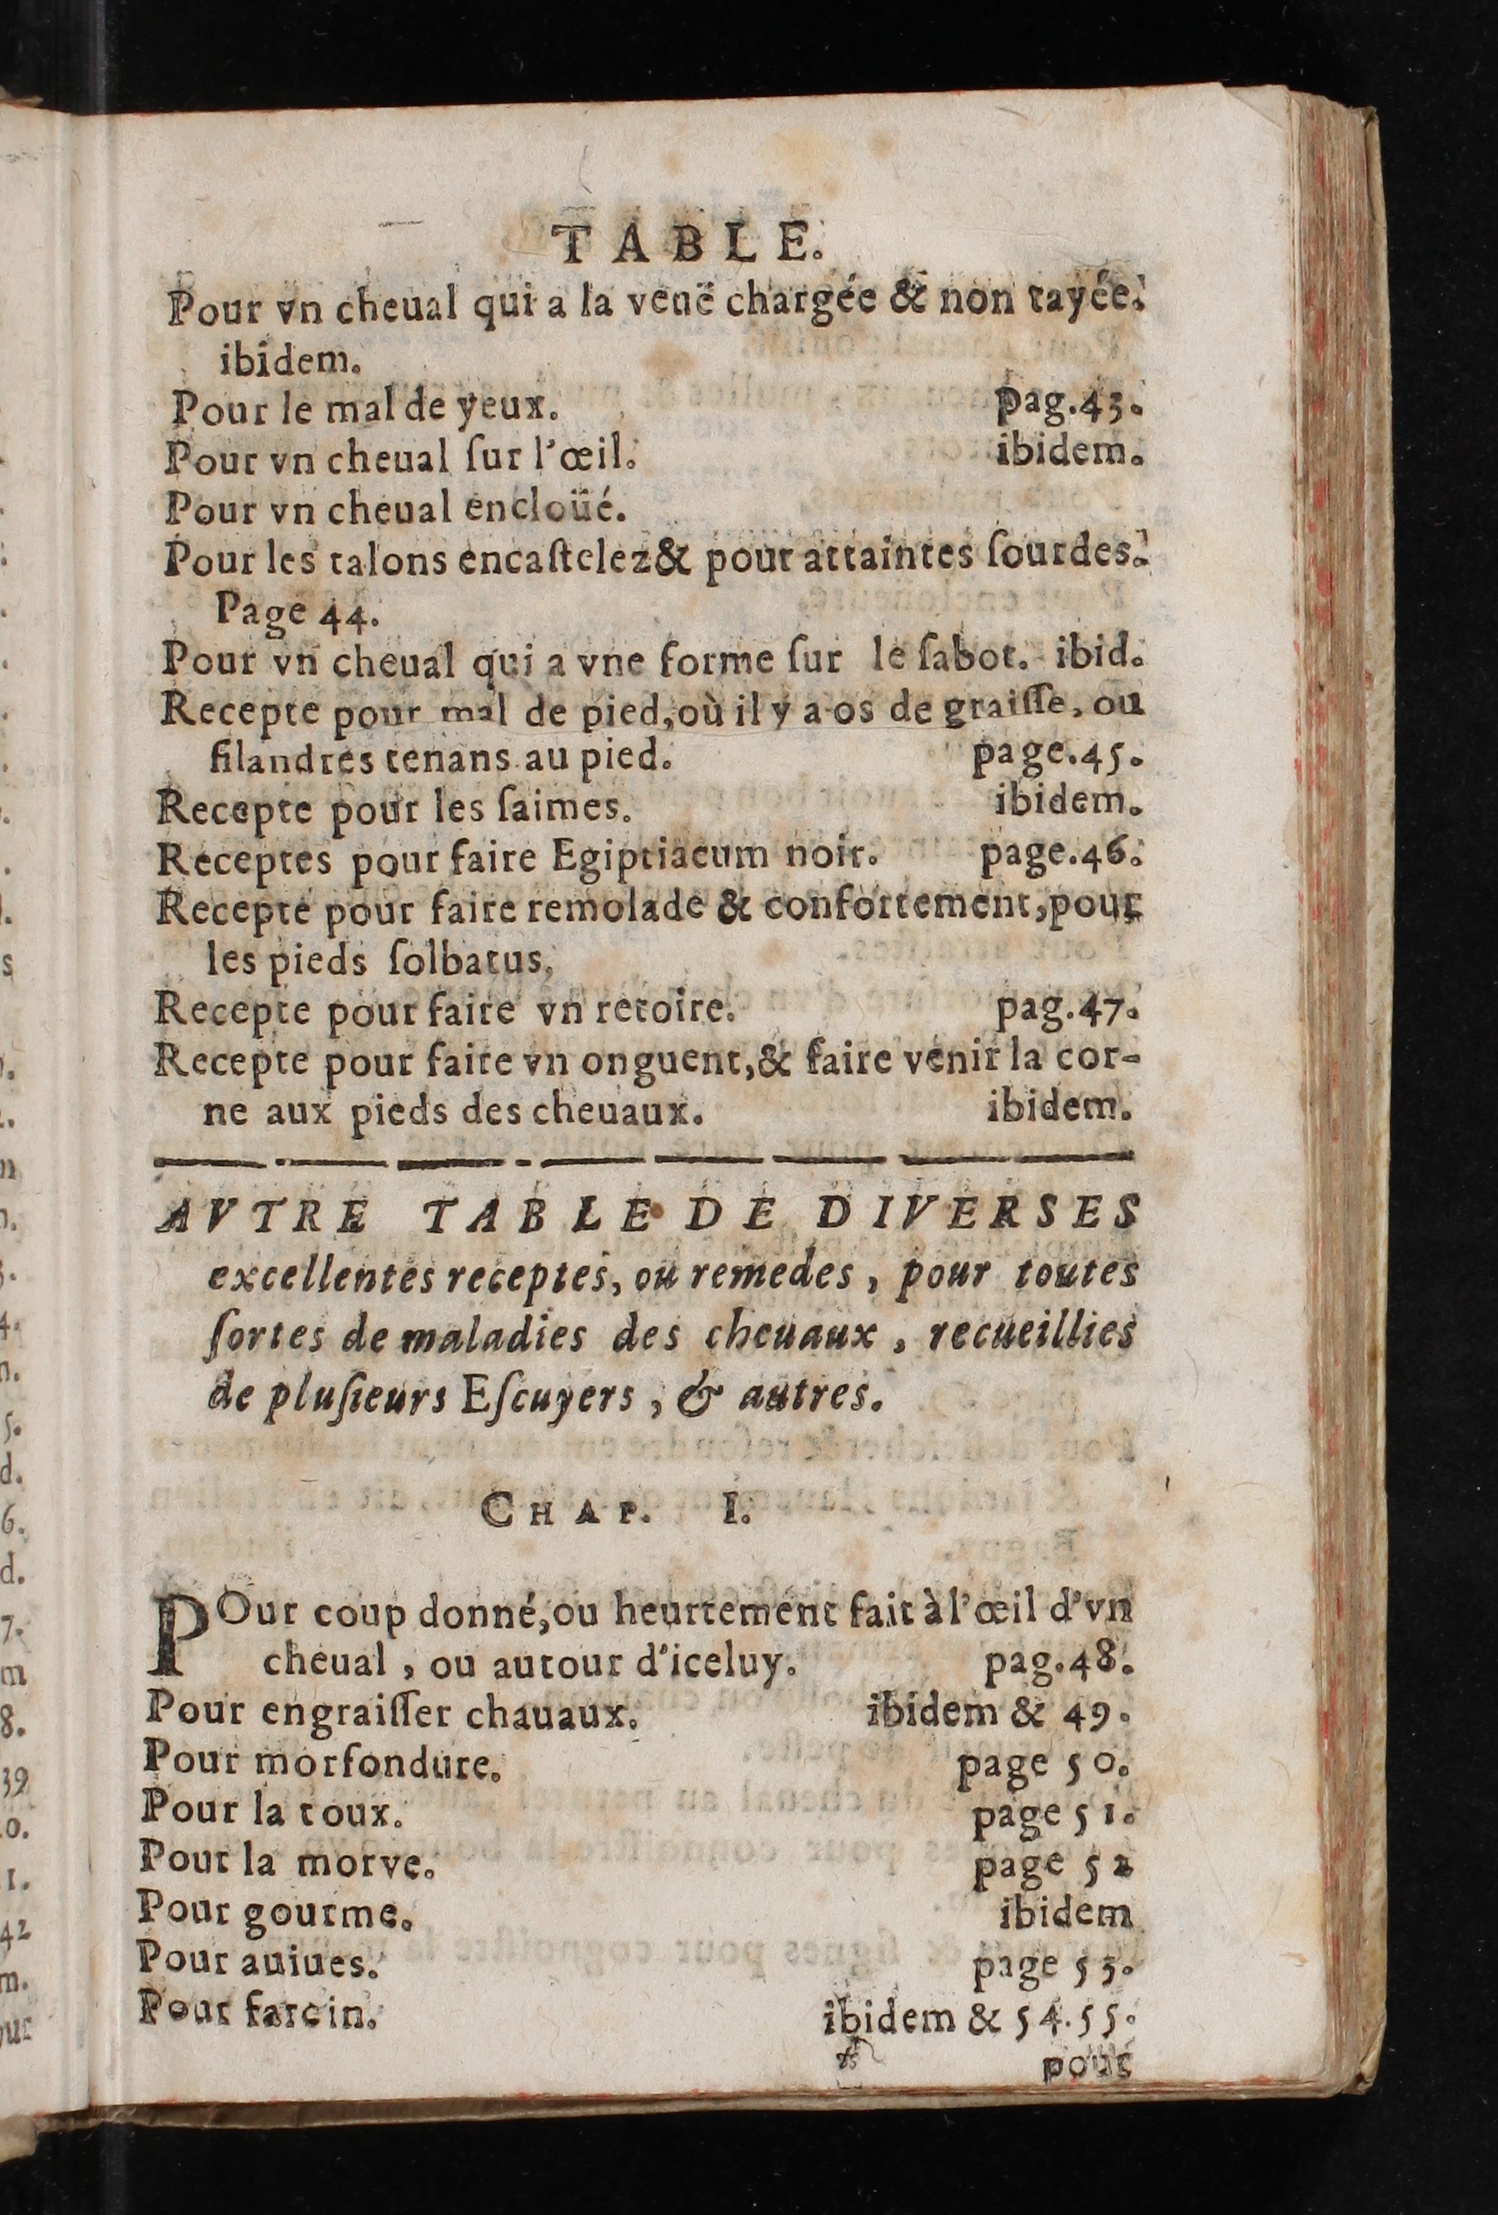 TABLE.
Pour vn cheual qui a la veuë chargée & non tayée.
ibidem.
Pour le mal de yeux. pag.43.
Pour vn cheual ſur l'œil. ibidem.
Pour vn cheual encloüé.
Pour les talons encaſtelez & pour attaintes ſourdes.
Page 44.
Pour vn cheual qui a vne forme ſur le ſabot. ibid.
Recepte pour mal de pied, où il y a os de graiſſe, ou
filandres tenans au pied. page.45.
Recepte pour les ſaimes. ibidem.
Receptes pour faire Egiptiacum noir. page.46.
Recepte pour faire remolade & confortement, pour
les pieds ſolbatus.
Recepte pour faire vn retoire. pag.47.
Recepte pour faire vn onguent, & faire venir la cor-
ne aux pieds des cheuaux. ibidem.
AVTRE TABLE DE DIVERSES
excellentes receptes, ou remedes, pour toutes
ſortes de maladies des cheuaux, recueillies
de pluſieurs Eſcuyers, & autres.
CHAP. I.
POur coup donné, ou heurtement fait à l'œil d'vn
cheual, ou autour d'iceluy. pag.48.
Pour engraiſſer chauaux. ibidem & 49.
Pour morfondure. page 50.
Pour la toux. page 51.
Pour la morve. page 52
Pour gourme. ibidem
Pour auiues. page 53.
Pour farcin. ibidem & 54.55.
* pour